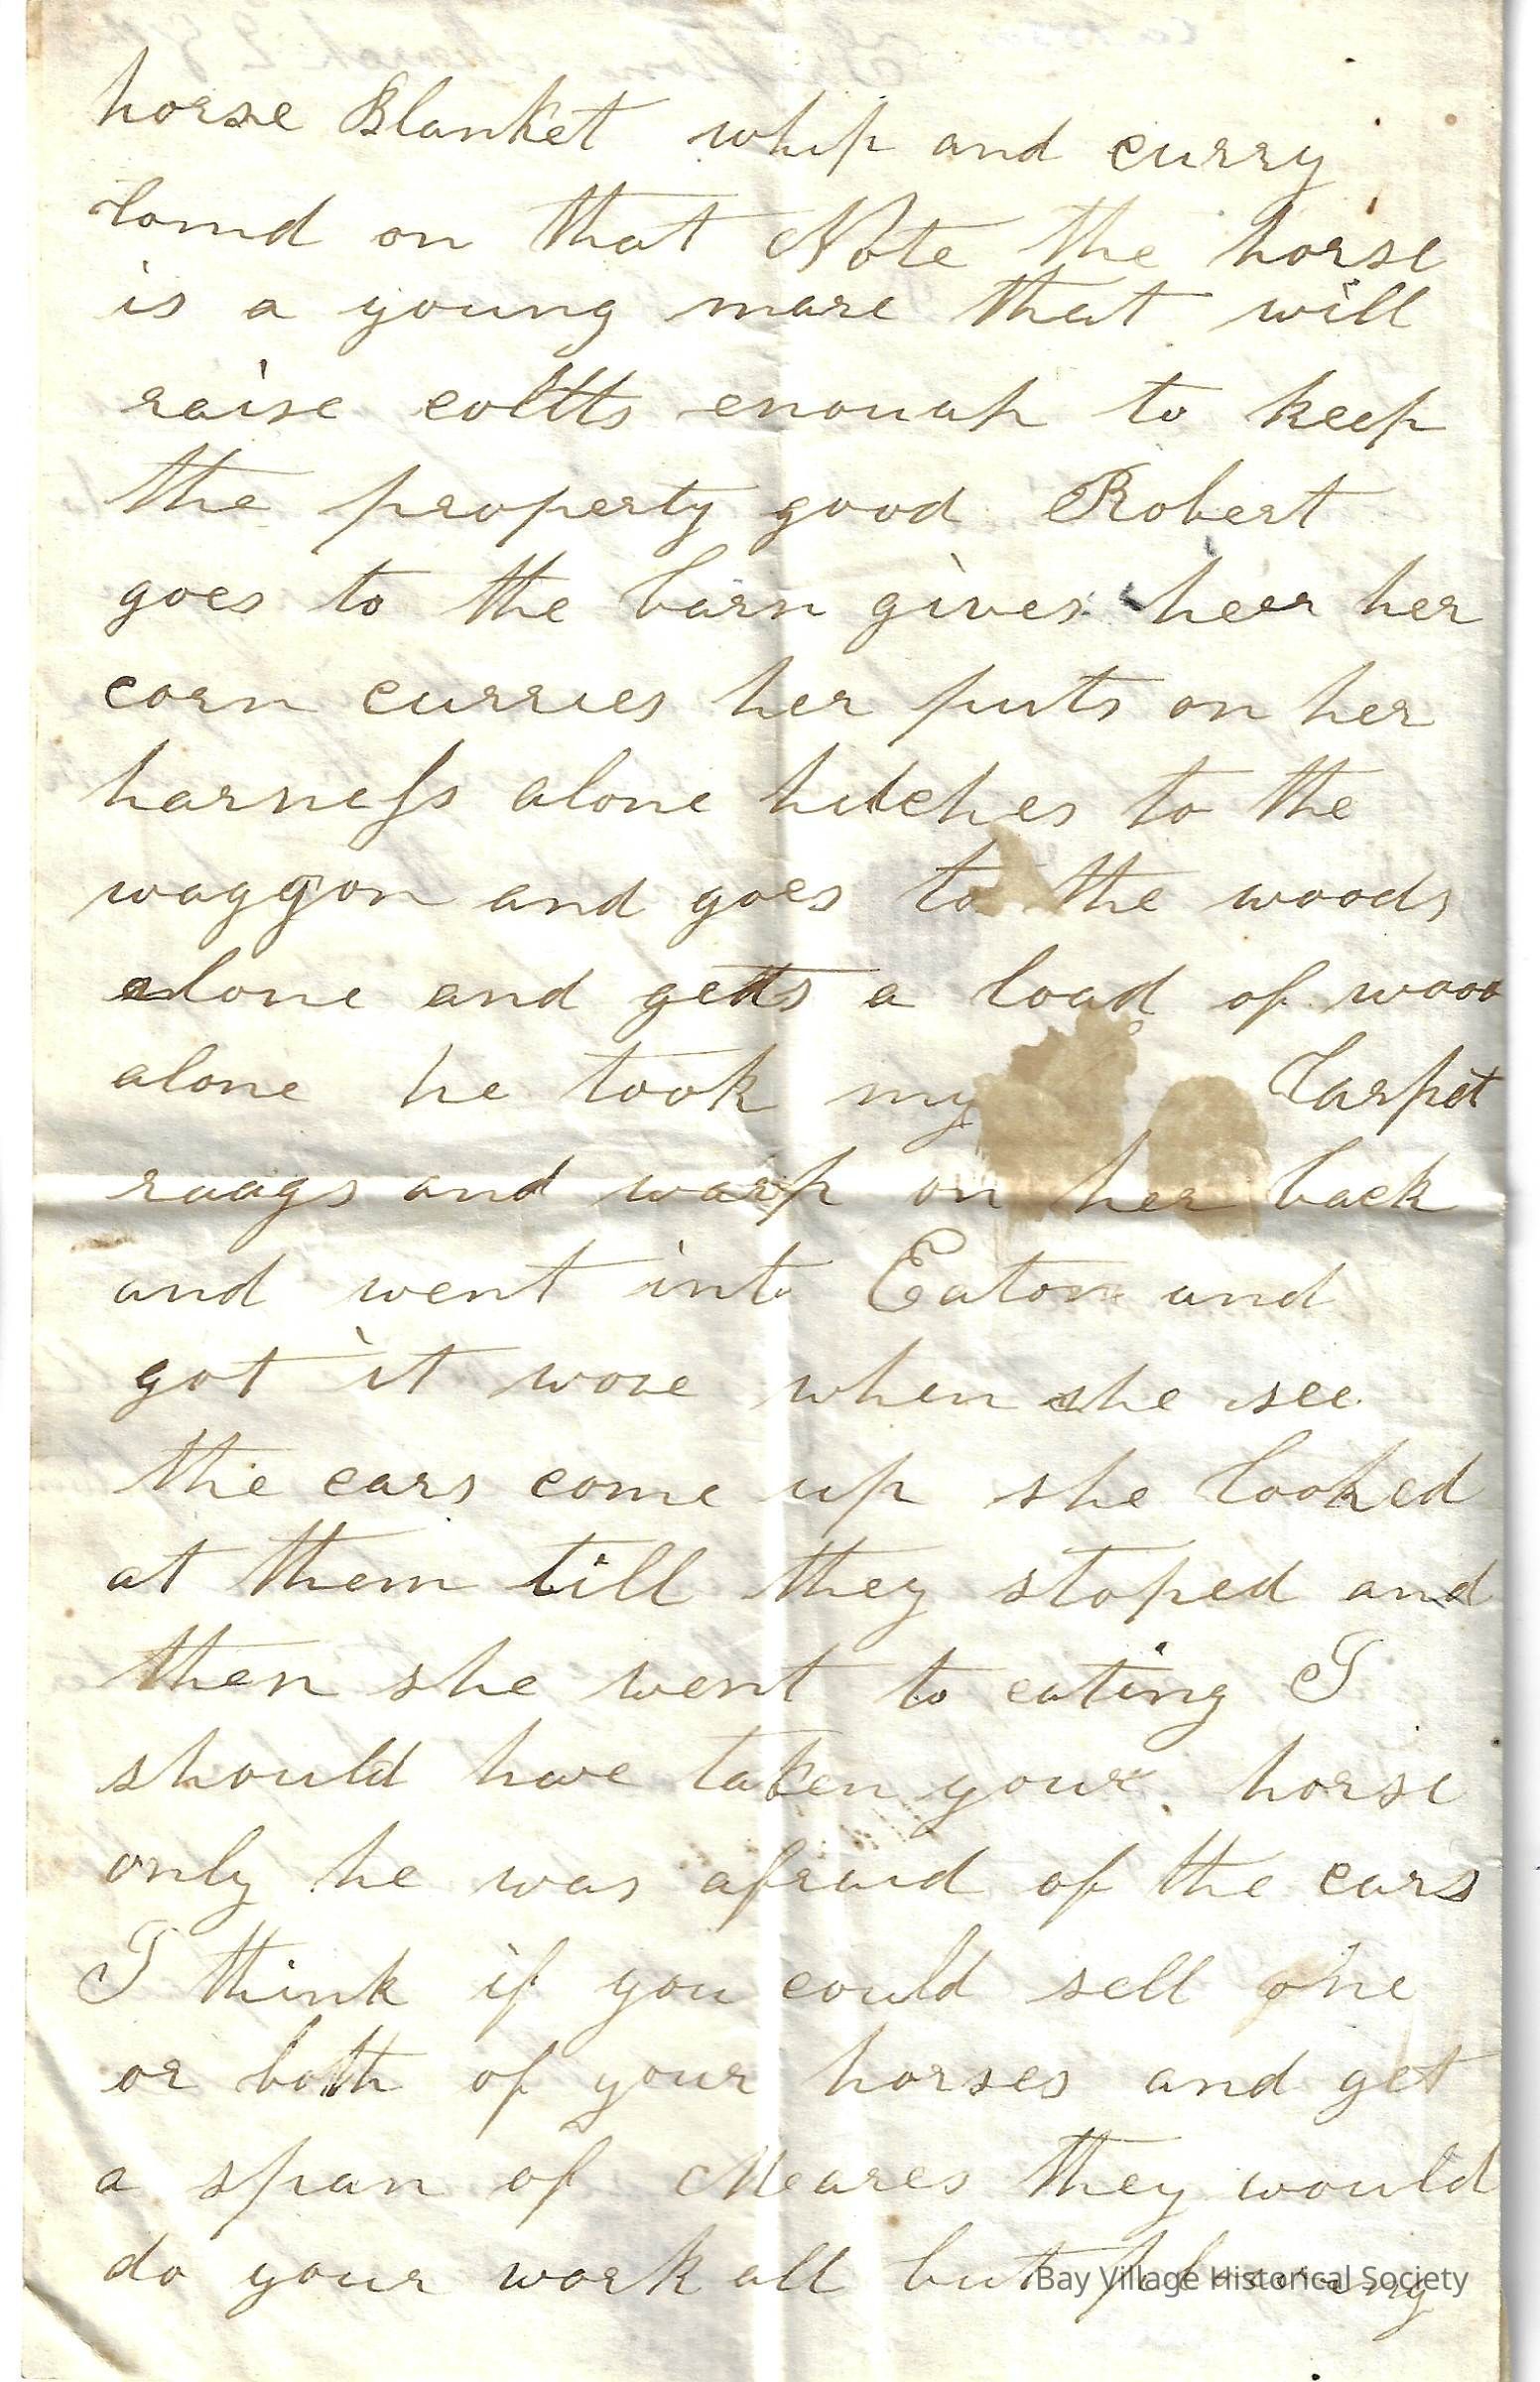 horse Blanket whip and curry
Comd on that Note the horse
is a young mare that will
raise coltts enouah to keep
the property good Robert
goes to the barn gives heer her
corn curries her puts on her
harness alone hitches to the
waggon and goes to the woods
alone and getts a load of wood
alone he took my Carpet
raags and warp on her back
and went into Eaton and
got it wove when she see
the cars come up she looked
at them till they stoped and
then she went to eating I
should have taken your horse
only he was afraid of the cars
I think if you could sell one
or both of your horses and get
a span of Meares they would
do your work all but
Bay Village Historical Society